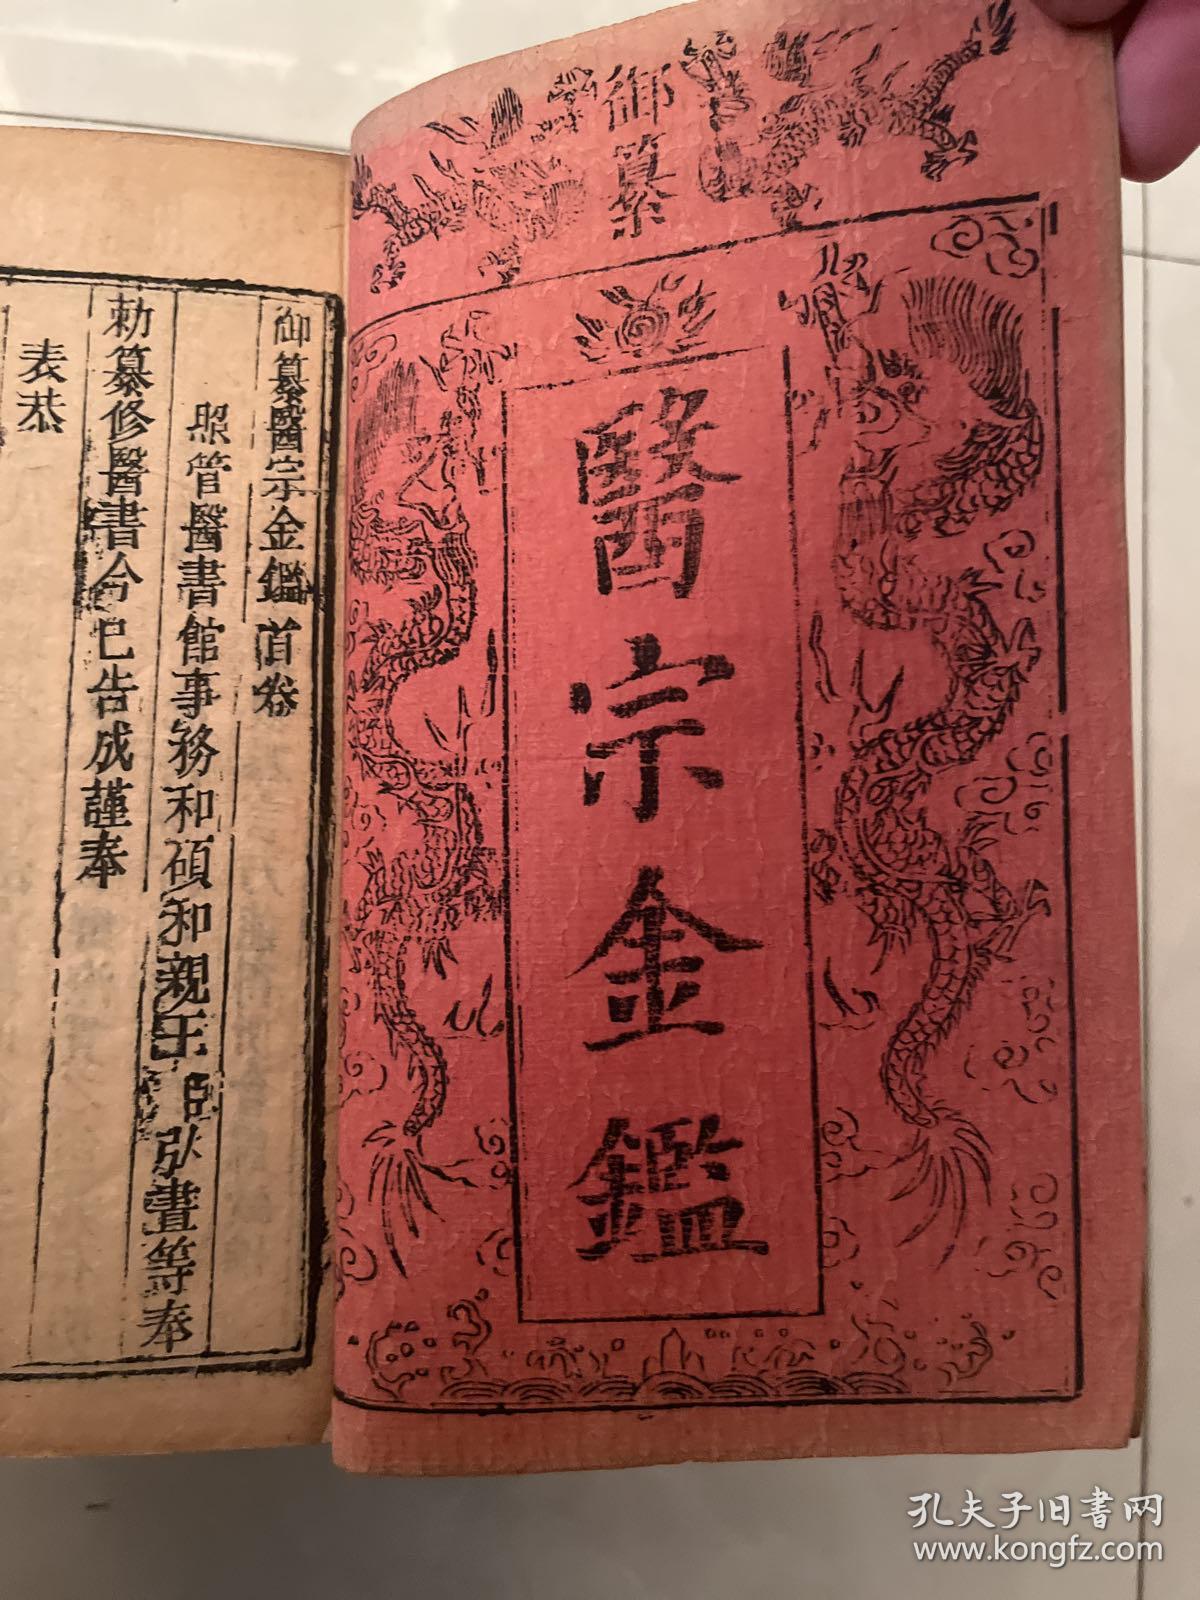 御纂
醫宗金鑑
御纂醫宗金鑑首卷
照管醫書館事務和碩和親王臣弘晝等奉
勅纂修醫書今已告成謹奉
表恭
孔夫子旧书网
www.kongfz.com